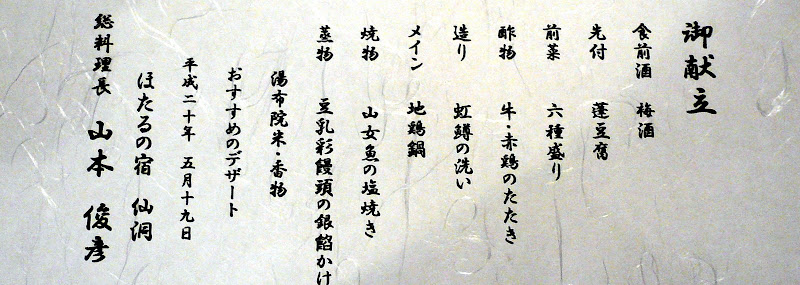 御献立
食前酒 梅酒
先付 蓬豆腐
前菜 六種盛り
酢物 牛・赤鶏のたたき
造り 虹鱒の洗い
メイン 地鶏鍋
焼物 山女魚の塩焼き
蒸物 豆乳彩饅頭の銀餡かけ
湯布院米・香物
おすすめのデザート
平成二十年 五月十九日
ほたるの宿 仙洞
総料理長 山本 俊彦